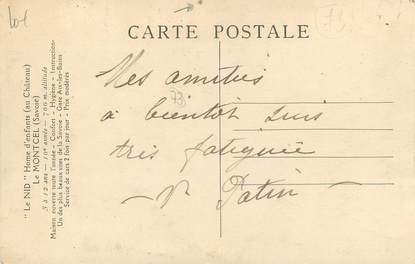 CARTE POSTALE
Mes amitiés
à bientôt suis
très fatiguée
Patin
73
"Le NID" Home d'enfants (au Château)
Le MONTCEL (Savoie)
3 à 12 ans — 10e année — 700 m. altitude
Maison ouverte toute l'année - Confort - Hygiène - Instruction
Un des plus beaux sites de la Savoie - Gare Aix-les-Bains
Service de cars 2 fois par jour - Prix modérés